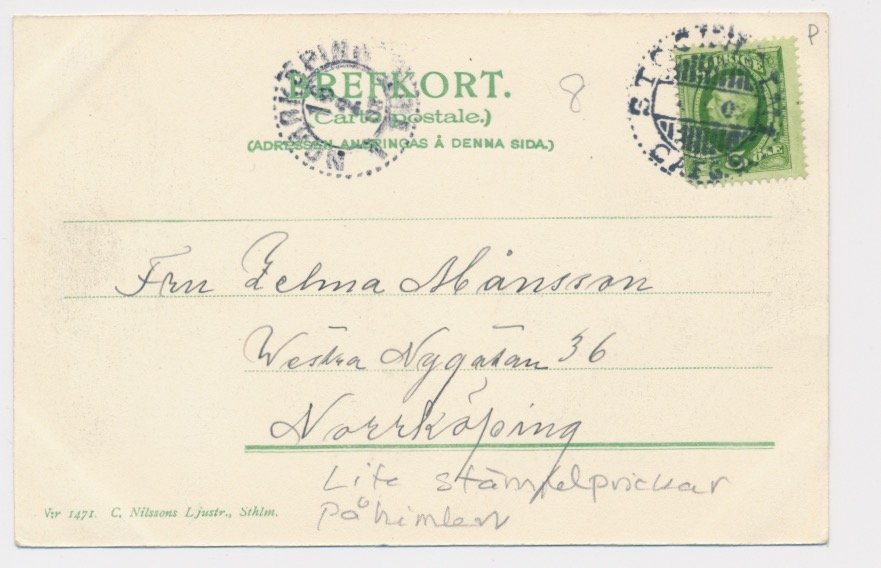 P
8
BREFKORT.
(Carte postale.)
(ADRESSEN ANBRINGAS Å DENNA SIDA.)
Fru Zelma Månsson
Westra Nygatan 36
Norrköping
Lite stämpelprickar
på himlen
Ver 1471. C. Nilssons Ljustr., Sthlm.